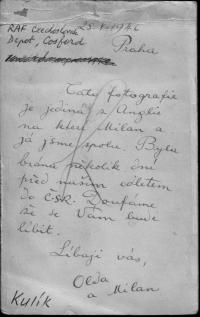 RAF Czechoslovak
Depot, Cosford
25-1-1946
Praha
Tato fotografie
je jediná z Anglie
na které Milan a
já jsme spolu. Byla
brána několik dní
před našim odletem
do ČSR. Doufáme
že se Vám bude
líbit.
Líbají vás,
Olda
a Milan
Kulík